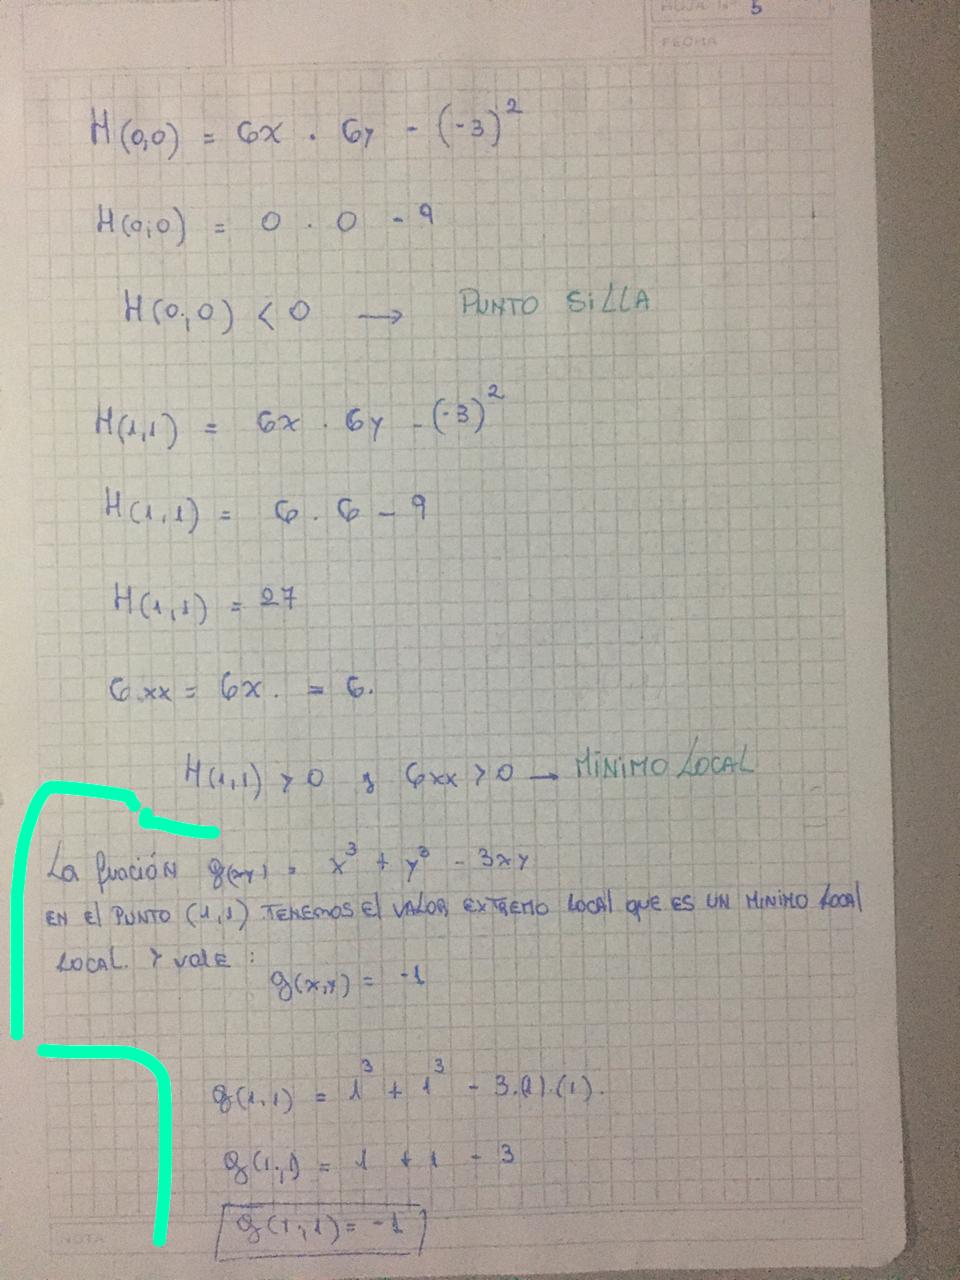 HOJA N° 5
FECHA
H(0,0) = 6x . 6y - (-3)²
H(0,0) = 0 . 0 - 9
H(0,0) < 0 → PUNTO SILLA
H(1,1) = 6x . 6y - (-3)²
H(1,1) = 6 . 6 - 9
H(1,1) = 27
6xx = 6x. = 6.
H(1,1) > 0 y 6xx > 0 → MÍNIMO LOCAL
La función g(x,y) = x³ + y³ - 3xy
EN El PUNTO (1,1) TENEMOS El VALOR EXTREMO local que ES UN MINIMO local
LOCAL. Y vale :
g(x,y) = -1
g(1,1) = 1³ + 1³ - 3.(1).(1).
g(1,1) = 1 + 1 - 3
g(1,1) = -1
NOTA